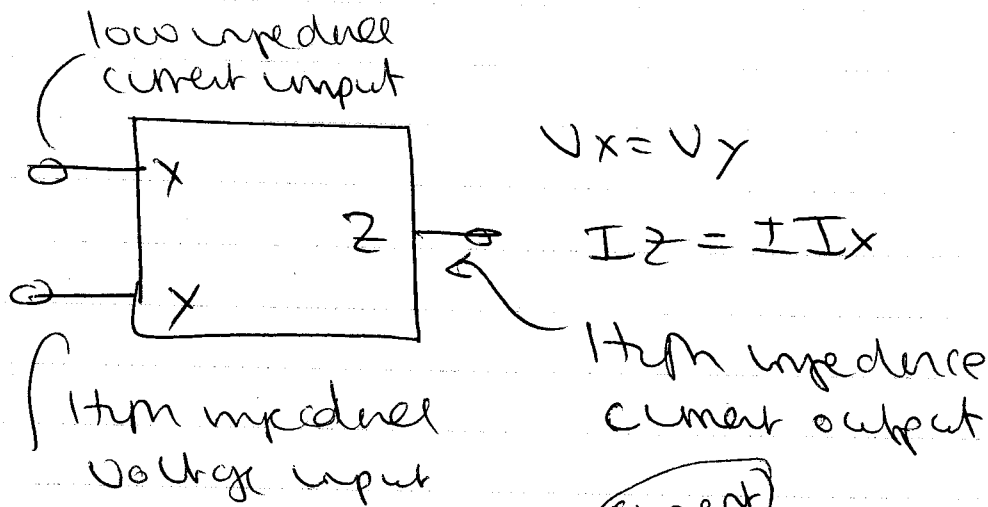 low impedance
current input
X
Vx = Vy
Z
Iz = ± Ix
Y
High impedance
current output
High impedance
voltage input
current